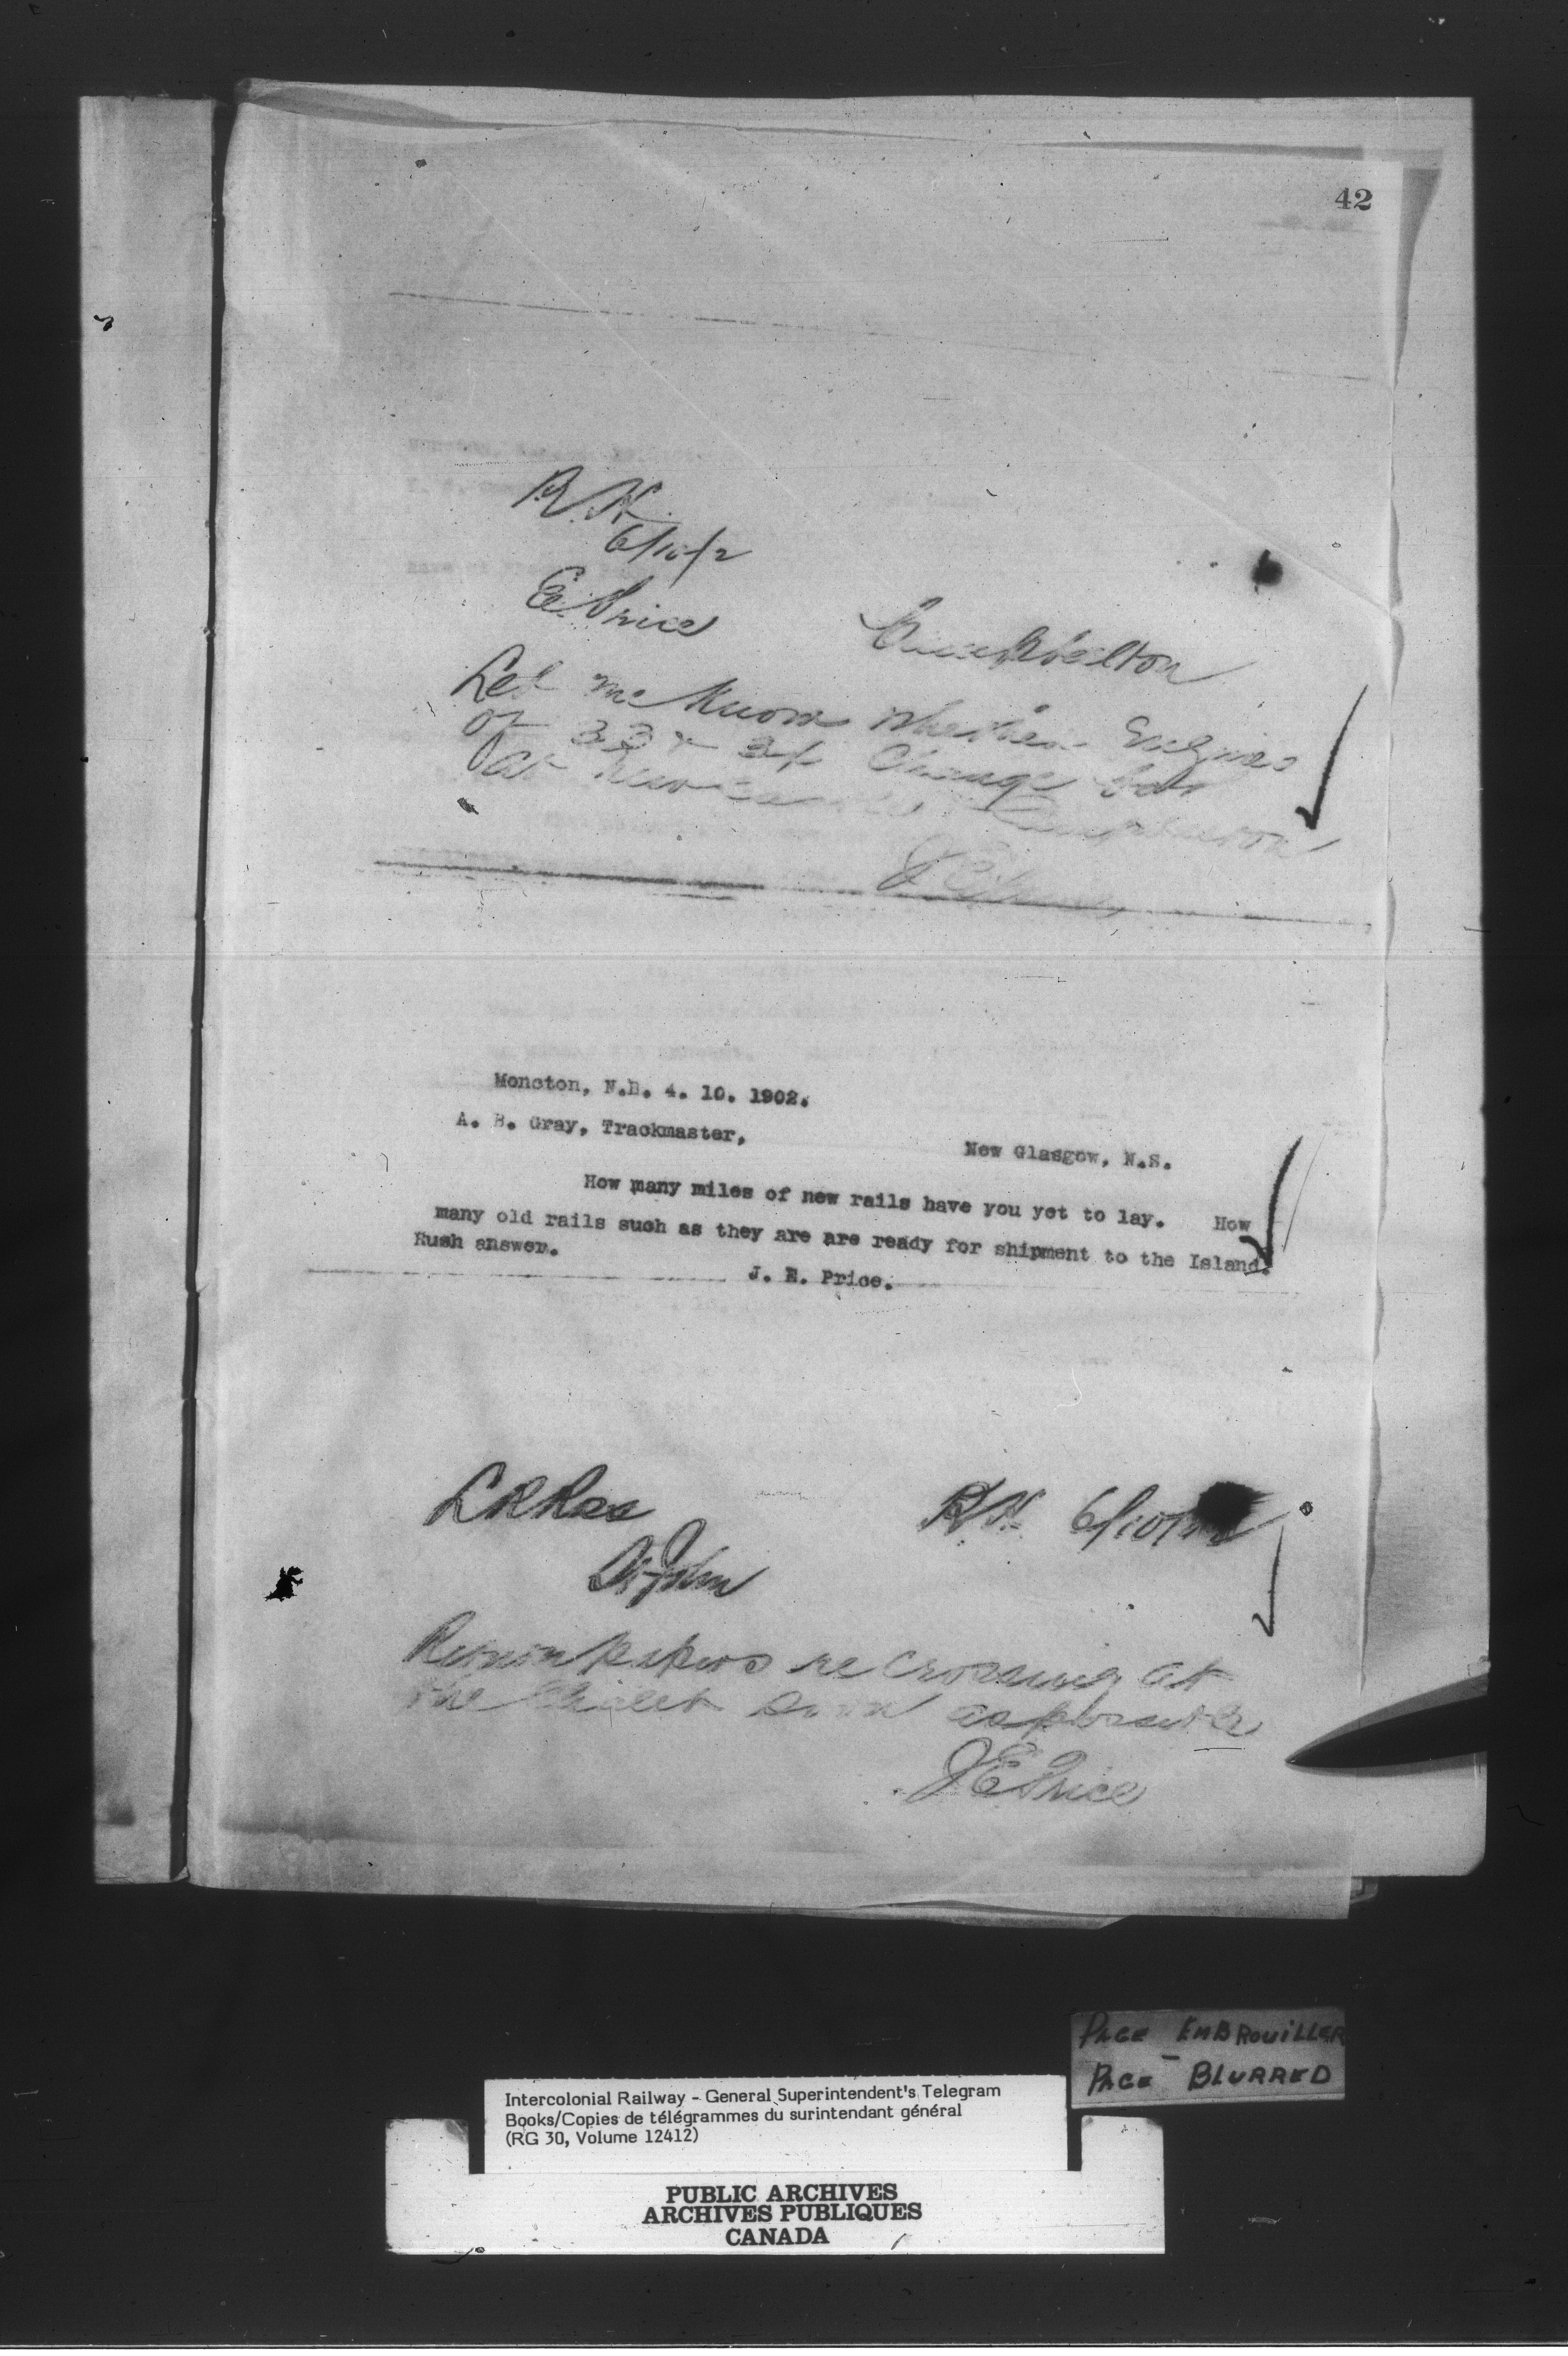 42
R.H.
6/10/2
E. Price
Campbellton
Let me know whether Engines
of 33 & 34 change
at Campbellton
Moncton, N.B. 4. 10. 1902.
A. B. Gray, Trackmaster,
New Glasgow, N.S.
How many miles of new rails have you yet to lay. How
many old rails such as they are are ready for shipment to the Island.
Rush answer.
J. E. Price.
L R Ross
R.H. 6/10/
St John
papers re crossing at
the as possible
J E Price
PAGE EMBROUILLER
PAGE BLURRED
Intercolonial Railway - General Superintendent's Telegram
Books/Copies de télégrammes du surintendant général
(RG 30, Volume 12412)
PUBLIC ARCHIVES
ARCHIVES PUBLIQUES
CANADA